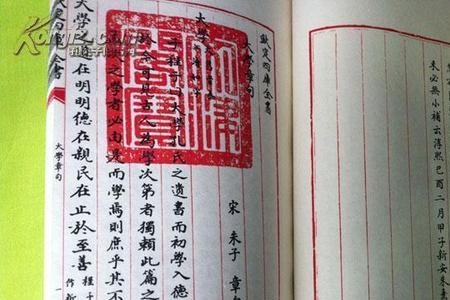 未必無小補云淳熙己酉二月甲子新安朱
欽定四庫全書
大學章句
宋 朱子 章
大學
子程子曰大學孔氏之遺書而初學入德
於今可見古人為學次第者獨賴此篇之
之學者必由是而學焉則庶乎其不
大學之道在明明德在親民在止於至善
程子
作新
四庫全書
大學章句